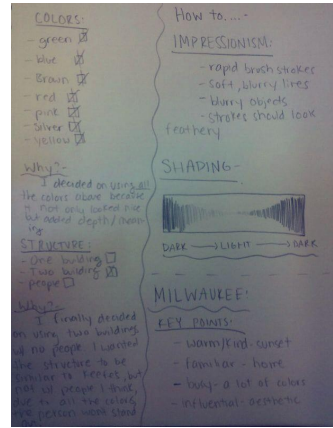 COLORS:
- green
- blue
- Brown
- red
- pink
- Silver
- yellow
Why?-
I decided on using all
the colors above because
it not only looked nice
but added depth/meaning
STRUCTURE:
- One building
- Two building
- people
Why?-
I finally decided
on using two buildings
but no people. I wanted
the structure to be
similar to
but
not so people I think,
due to all the colors,
the person wont stand
How to....-
IMPRESSIONISM:
- rapid brush strokes
- soft, blurry lines
- blurry objects
- strokes should look
feathery
SHADING-
DARK → LIGHT → DARK
MILWAUKEE:
KEY POINTS:
- warm/kind - sunset
- familiar - home
- busy - a lot of colors
- influential - aesthetic